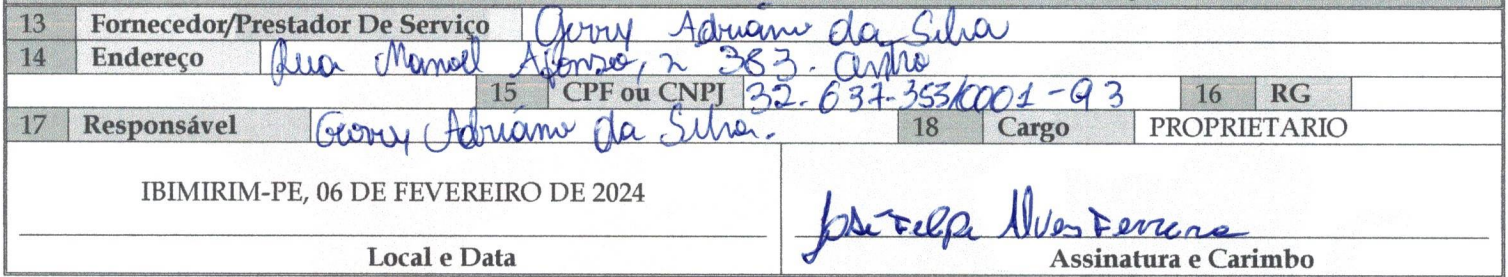 13 Fornecedor/Prestador De Serviço Gerry Adriano da Silva
14 Endereço Rua Manoel Afonso, n 383. Centro
15 CPF ou CNPJ 32.637.353/0001-93 16 RG
17 Responsável Gerry Adriano da Silva. 18 Cargo PROPRIETARIO
IBIMIRIM-PE, 06 DE FEVEREIRO DE 2024
José Felipe Alves Ferreira
Local e Data Assinatura e Carimbo